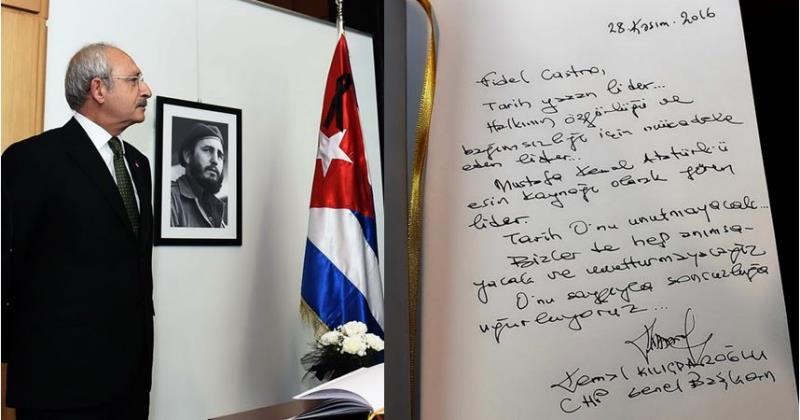 28. Kasım. 2016
Fidel Castro,
Tarih yazan lider...
Halkının özgürlüğü ve
bağımsızlığı için mücadele
eden lider...
Mustafa Kemal Atatürk'ü
esin kaynağı olarak gören
lider.
Tarih O'nu unutmayacak...
Bizler de hep anımsa-
yacak ve unutturmayacağız
O'nu saygıyla sonsuzluğa
uğurluyoruz...
Kemal KILIÇDAROĞLU
CHP Genel Başkanı